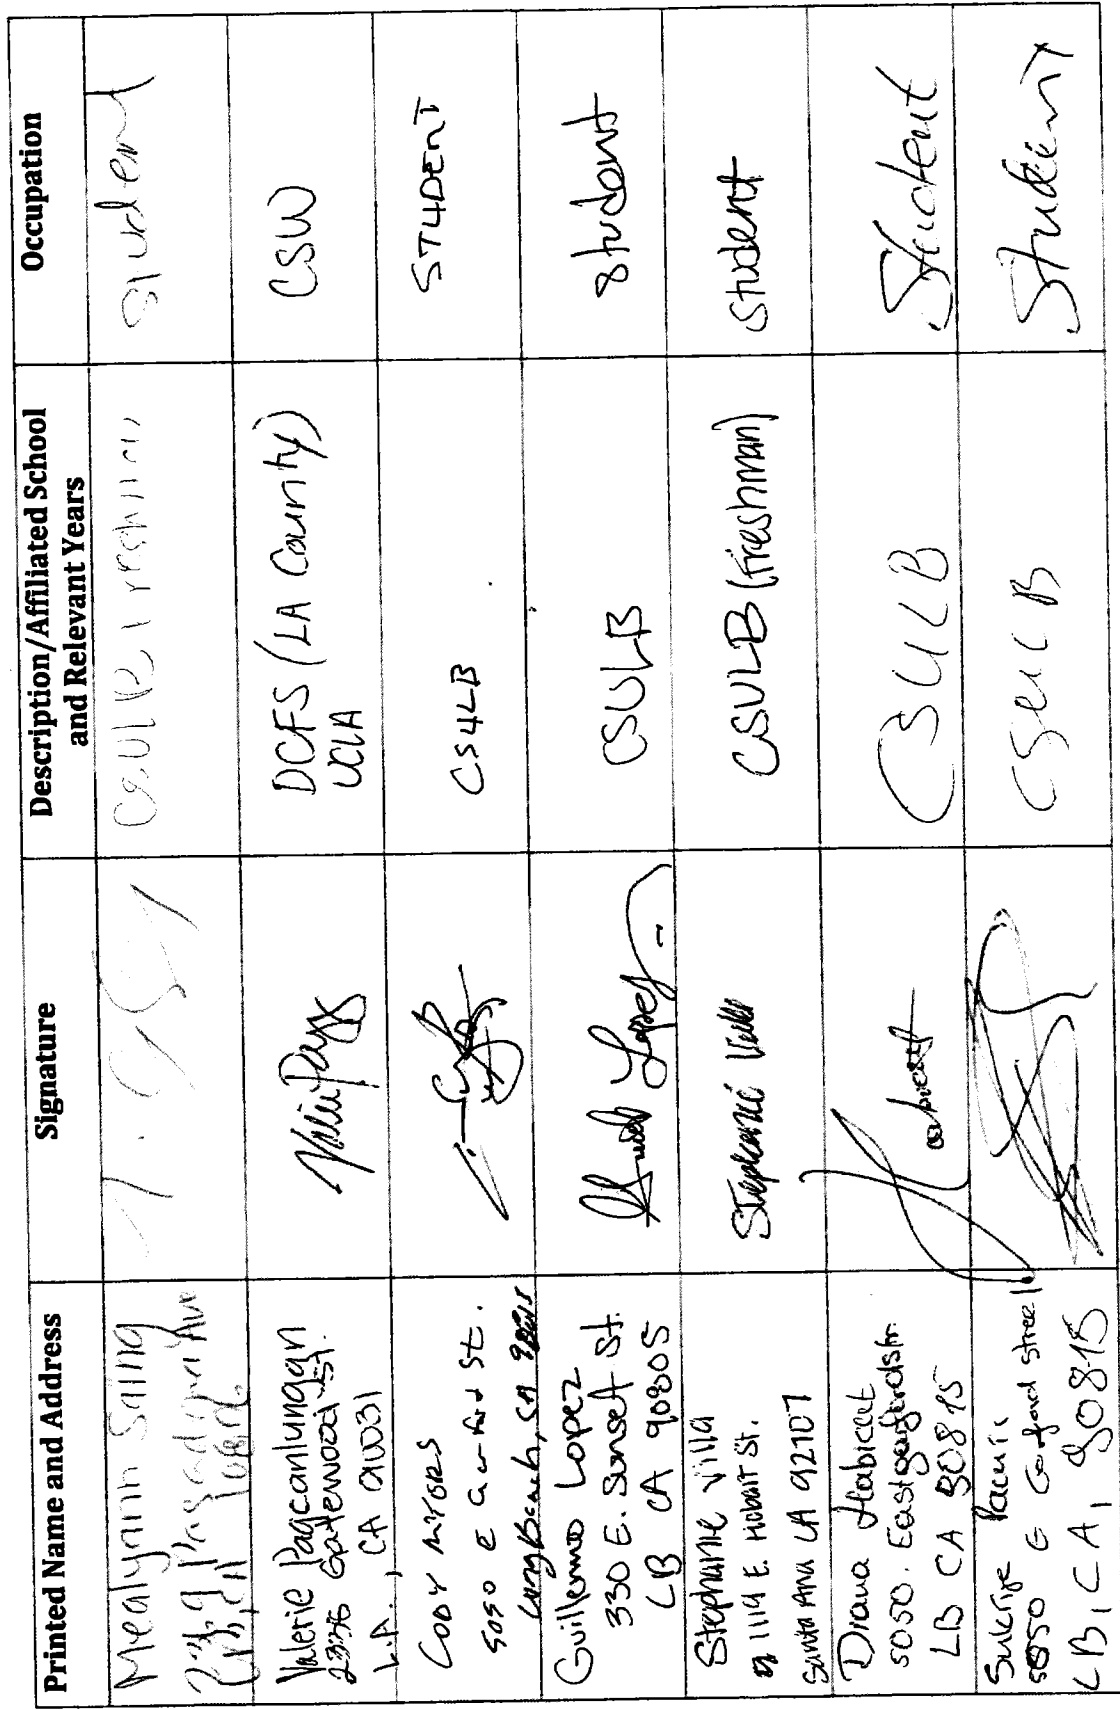 Printed Name and Address
Signature
Description/Affiliated School
and Relevant Years
Occupation
Mealynn Saing
Pasadena Ave
student
Valerie Pagcanlungan
Gatewood St.
L.A., CA 90031
DCFS (LA County)
UCLA
CSW
CODY MYERS
5050 E Garford St.
Long Beach, CA
CSULB
STUDENT
Guillermo Lopez
330 E. Sunset St.
LB CA 90805
Lopez
CSULB
student
Stephanie Villa
1114 E. Hobart St.
Santa Ana CA 92707
Stephanie Villa
CSULB (Freshman)
student
Diana Habicut
5050. East garfordstr.
LB CA 90815
CSULB
Student
Sukrije
5050 E Garford street
LB, CA, 90815
CSULB
Student